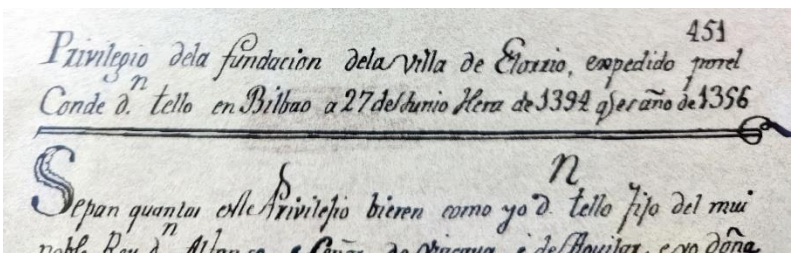 451
Privilegio dela fundacion dela villa de Elorrio, expedido porel
Conde d.n tello en Bilbao a 27 de Junio Hera de 1394 q es año de 1356
Sepan quantos este Privilejio bieren como yo d.n tello fijo del mui
noble Rey d.n Alfonso, e Señor de Vizcaya, e de Aguilar, e yo doña